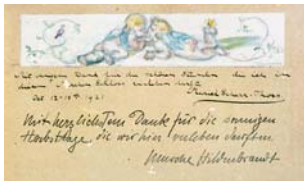 Mit innigem Dank für die schönen Stunden die ich in
diesem Schloss verleben durfte
Oct 12–16th 1921
Mit herzlichstem Danke für die sonnigen
Herbsttage, die wir hier verleben durften.
Hildenbrandt